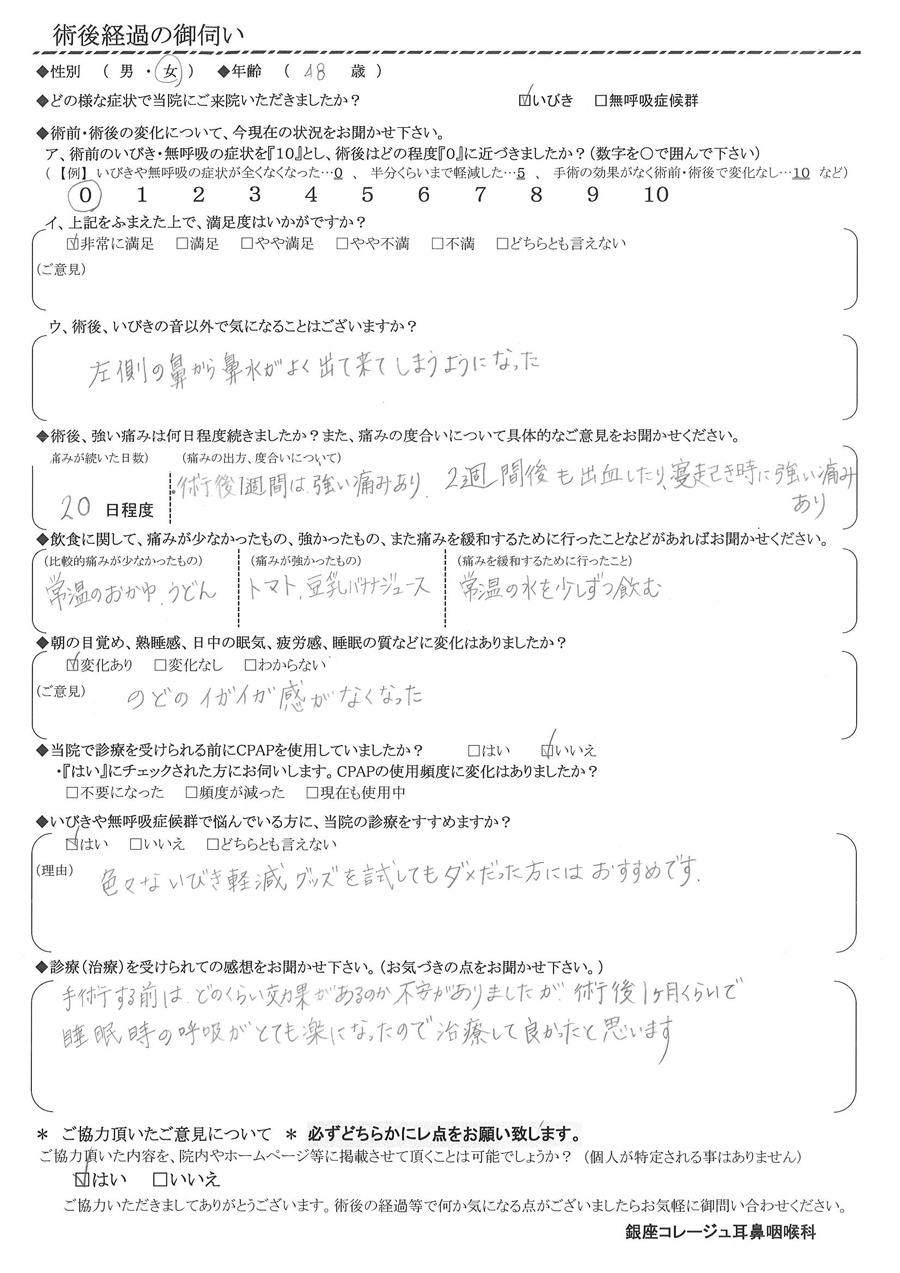 術後経過の御伺い
◆性別 （ 男 ・ 女 ） ◆年齢 （ 48 歳 ）
◆どの様な症状で当院にご来院いただきましたか？ ☑いびき □無呼吸症候群
◆術前・術後の変化について、今現在の状況をお聞かせ下さい。
ア、術前のいびき・無呼吸の症状を『10』とし、術後はどの程度『0』に近づきましたか？（数字を〇で囲んで下さい）
（【例】 いびきや無呼吸の症状が全くなくなった…0 、 半分くらいまで軽減した…5 、 手術の効果がなく術前・術後で変化なし…10 など）
0 1 2 3 4 5 6 7 8 9 10
イ、上記をふまえた上で、満足度はいかがですか？
☑非常に満足 □満足 □やや満足 □やや不満 □不満 □どちらとも言えない
（ご意見）
ウ、術後、いびきの音以外で気になることはございますか？
左側の鼻から鼻水がよく出て来てしまうようになった
◆術後、強い痛みは何日程度続きましたか？また、痛みの度合いについて具体的なご意見をお聞かせください。
痛みが続いた日数） （痛みの出方、度合いについて）
術後1週間は強い痛みあり、2週間後も出血したり、寝起き時に強い痛み
20 日程度 あり
◆飲食に関して、痛みが少なかったもの、強かったもの、また痛みを緩和するために行ったことなどがあればお聞かせください。
（比較的痛みが少なかったもの） （痛みが強かったもの） （痛みを緩和するために行ったこと）
常温のおかゆ、うどん トマト、豆乳バナナジュース 常温の水を少しずつ飲む
◆朝の目覚め、熟睡感、日中の眠気、疲労感、睡眠の質などに変化はありましたか？
☑変化あり □変化なし □わからない
（ご意見） のどのイガイガ感がなくなった
◆当院で診療を受けられる前にCPAPを使用していましたか？ □はい ☑いいえ
・『はい』にチェックされた方にお伺いします。CPAPの使用頻度に変化はありましたか？
□不要になった □頻度が減った □現在も使用中
◆いびきや無呼吸症候群で悩んでいる方に、当院の診療をすすめますか？
☑はい □いいえ □どちらとも言えない
（理由） 色々ないびき軽減グッズを試してもダメだった方にはおすすめです。
◆診療（治療）を受けられての感想をお聞かせ下さい。（お気づきの点をお聞かせ下さい。）
手術する前は、どのくらい効果があるのか不安がありましたが、術後1ヶ月くらいで
睡眠時の呼吸がとても楽になったので治療して良かったと思います
＊ ご協力頂いたご意見について ＊ 必ずどちらかにレ点をお願い致します。
ご協力頂いた内容を、院内やホームページ等に掲載させて頂くことは可能でしょうか？ （個人が特定される事はありません）
☑はい □いいえ
ご協力いただきましてありがとうございます。術後の経過等で何か気になる点がございましたらお気軽に御問い合わせください。
銀座コレージュ耳鼻咽喉科